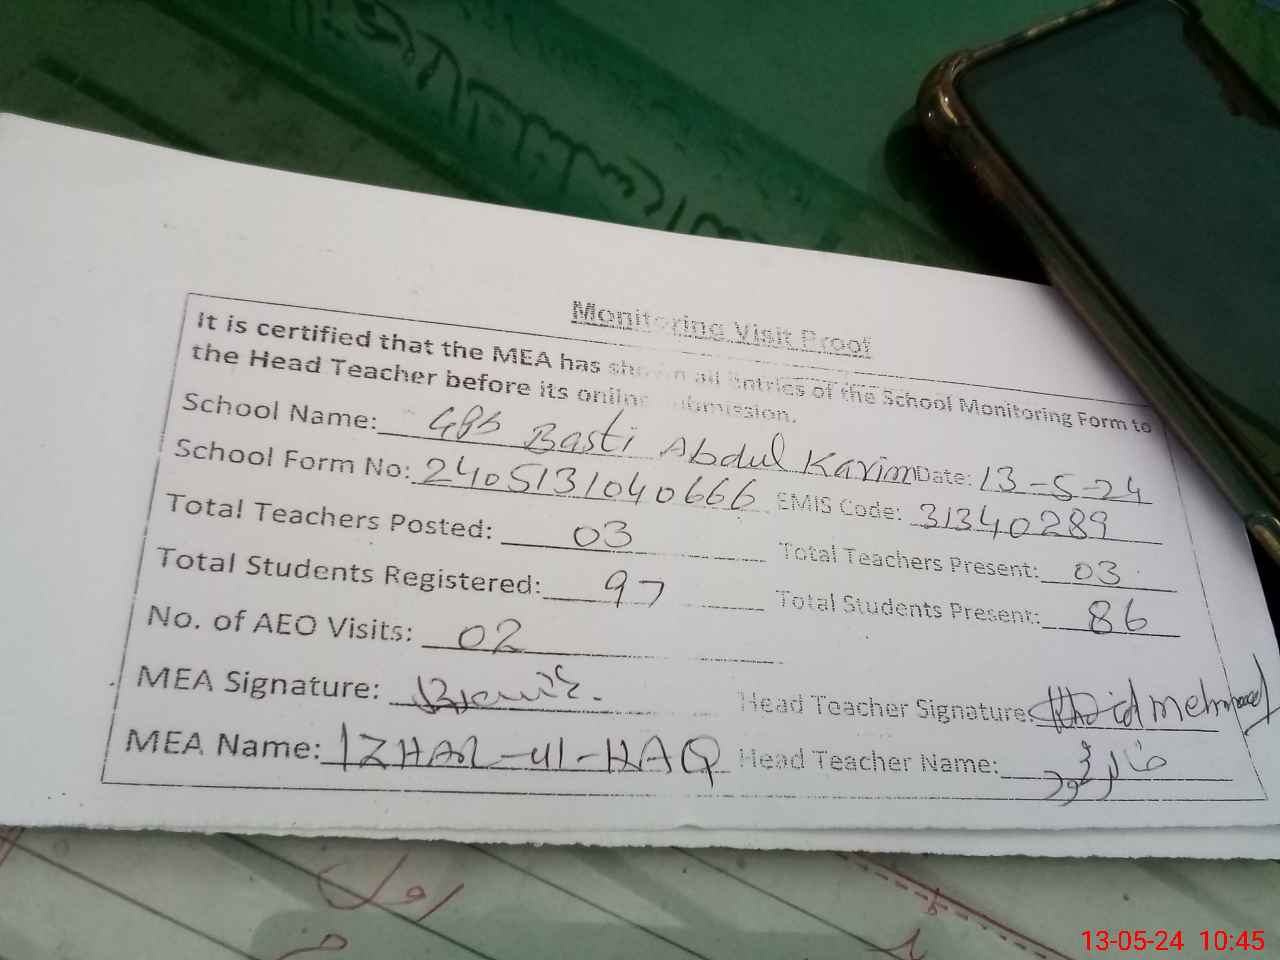 Monitoring Visit Proof
It is certified that the MEA has shown all Entries of the School Monitoring Form to
the Head Teacher before its online submission.
School Name: GPS Basti Abdul Karim Date: 13-5-24
School Form No: 2405131040666 EMIS Code: 31340289
Total Teachers Posted: 03 Total Teachers Present: 03
Total Students Registered: 97 Total Students Present: 86
No. of AEO Visits: 02
MEA Signature: Head Teacher Signature:
MEA Name: IZHAR-ul-HAQ Head Teacher Name:
13-05-24 10:45